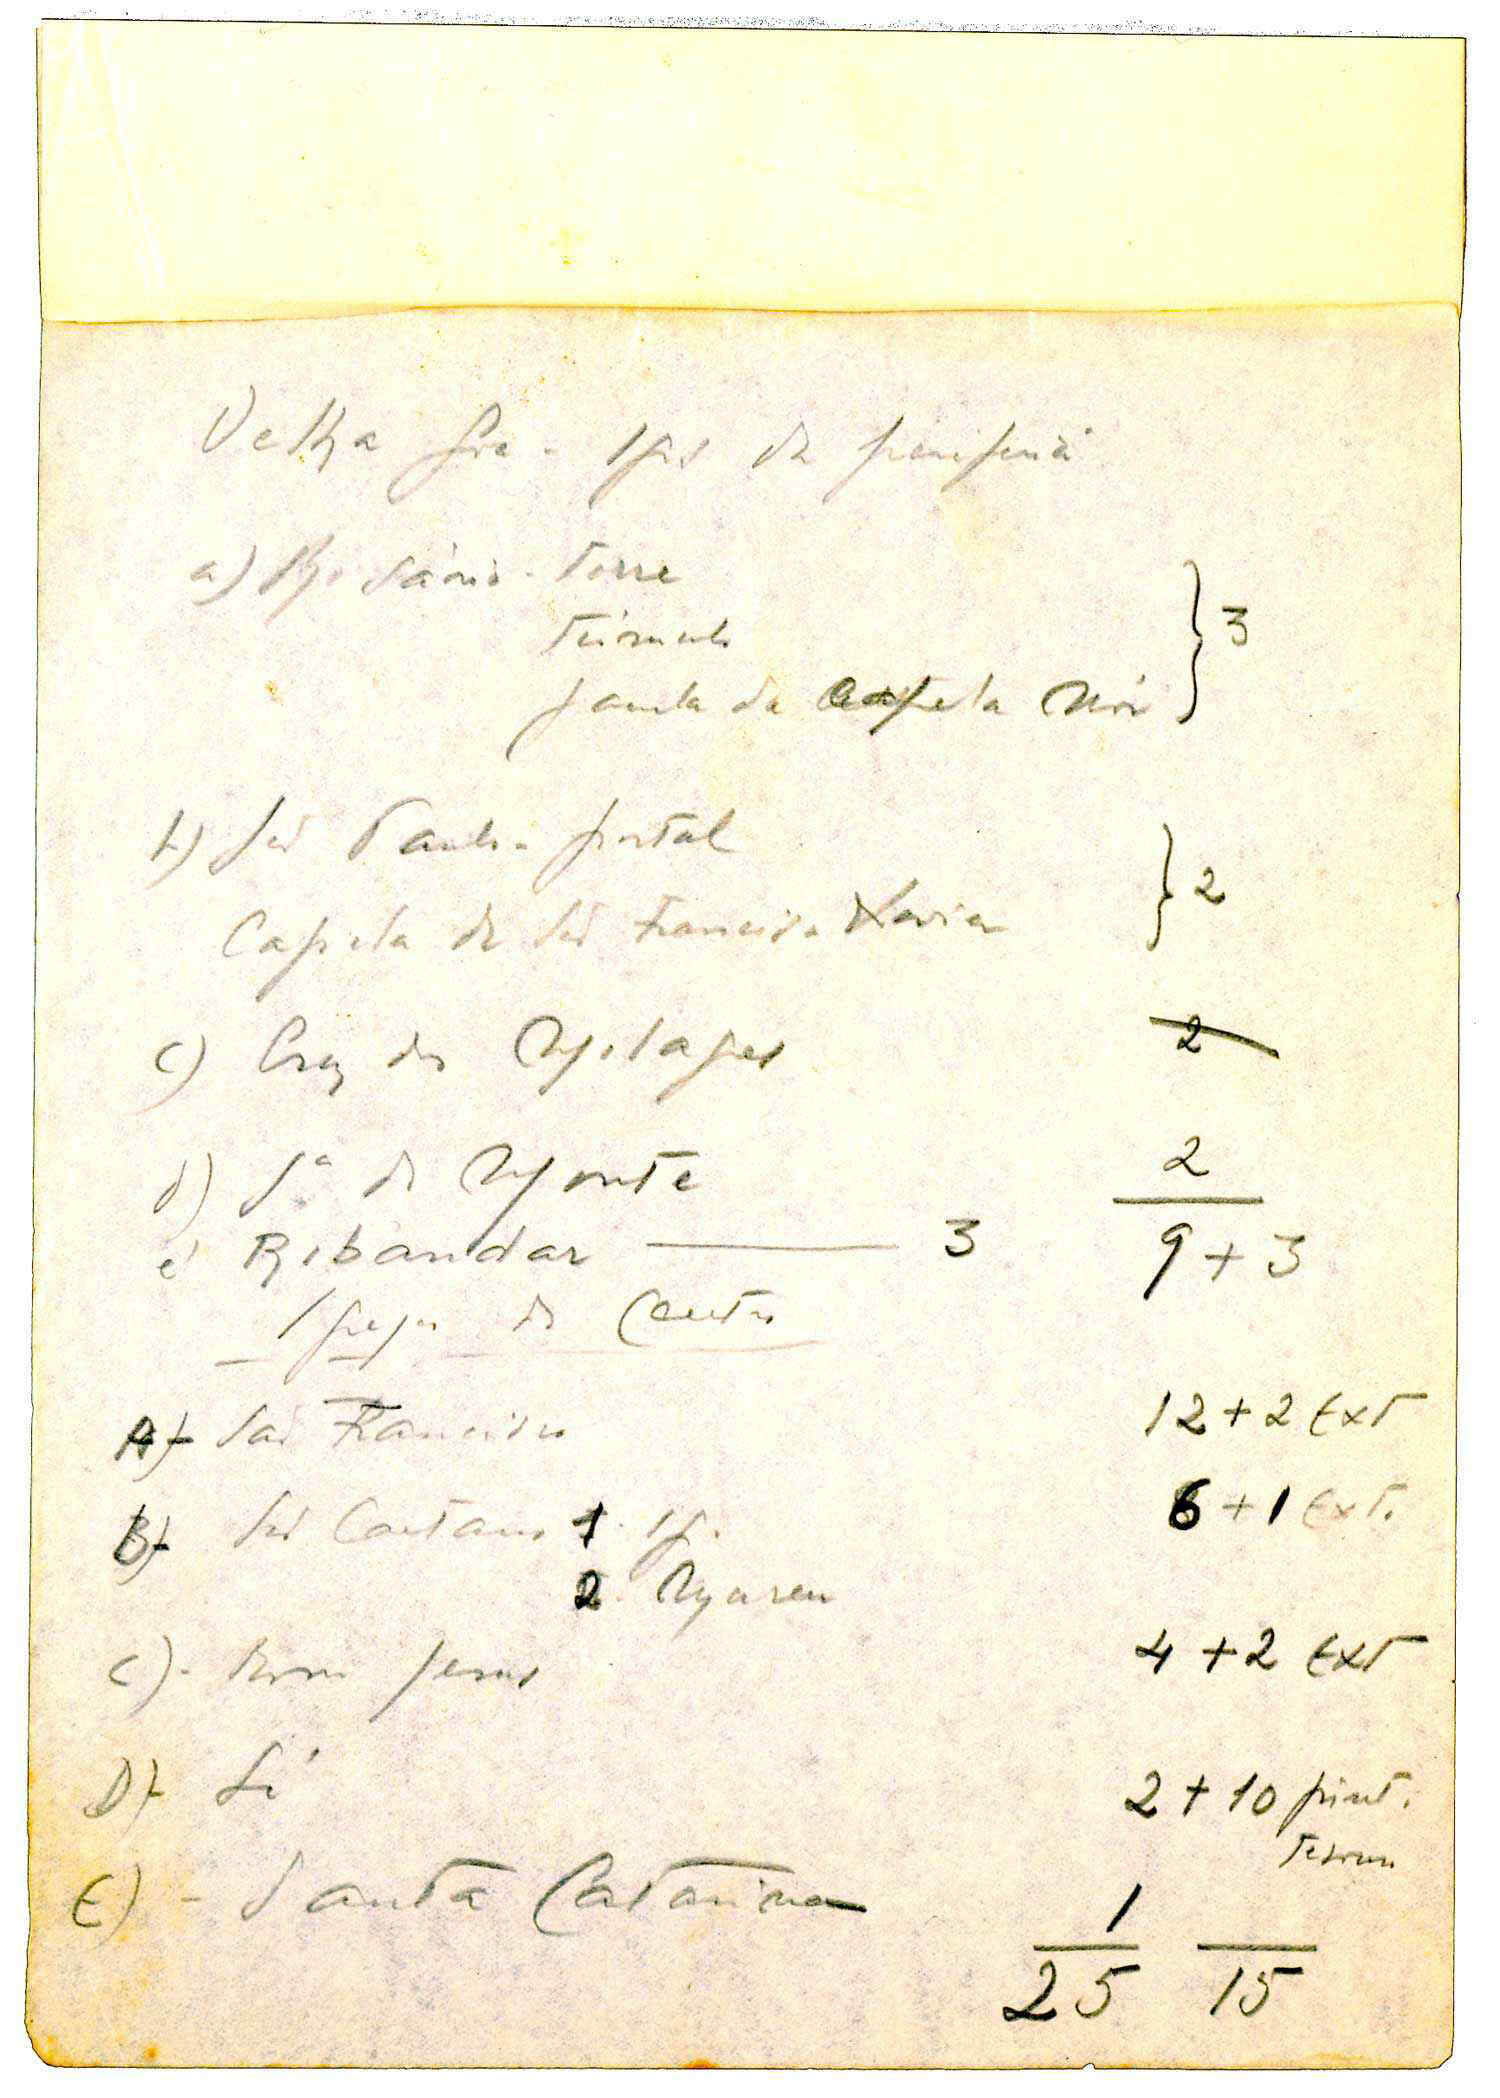 Velha Goa - Igs da periferia
a) Rosário - Torre
Túmulo
janela da Capela Mór } 3
b) São Paulo - portal
Capela de São Francisco Xavier } 2
c) Cruz dos Milagres 2
d) Sª do Monte 2
e) Ribandar 3 9 + 3
Igrejas do Centro
A) - São Francisco 12 + 2 Ext
B) - São Caetano 1. Ig. 6 + 1 Ext.
2.
C) - Bom Jesus 4 + 2 Ext
D) - Sé 2 + 10 pint.
E) - Santa Catarina 1
25 15